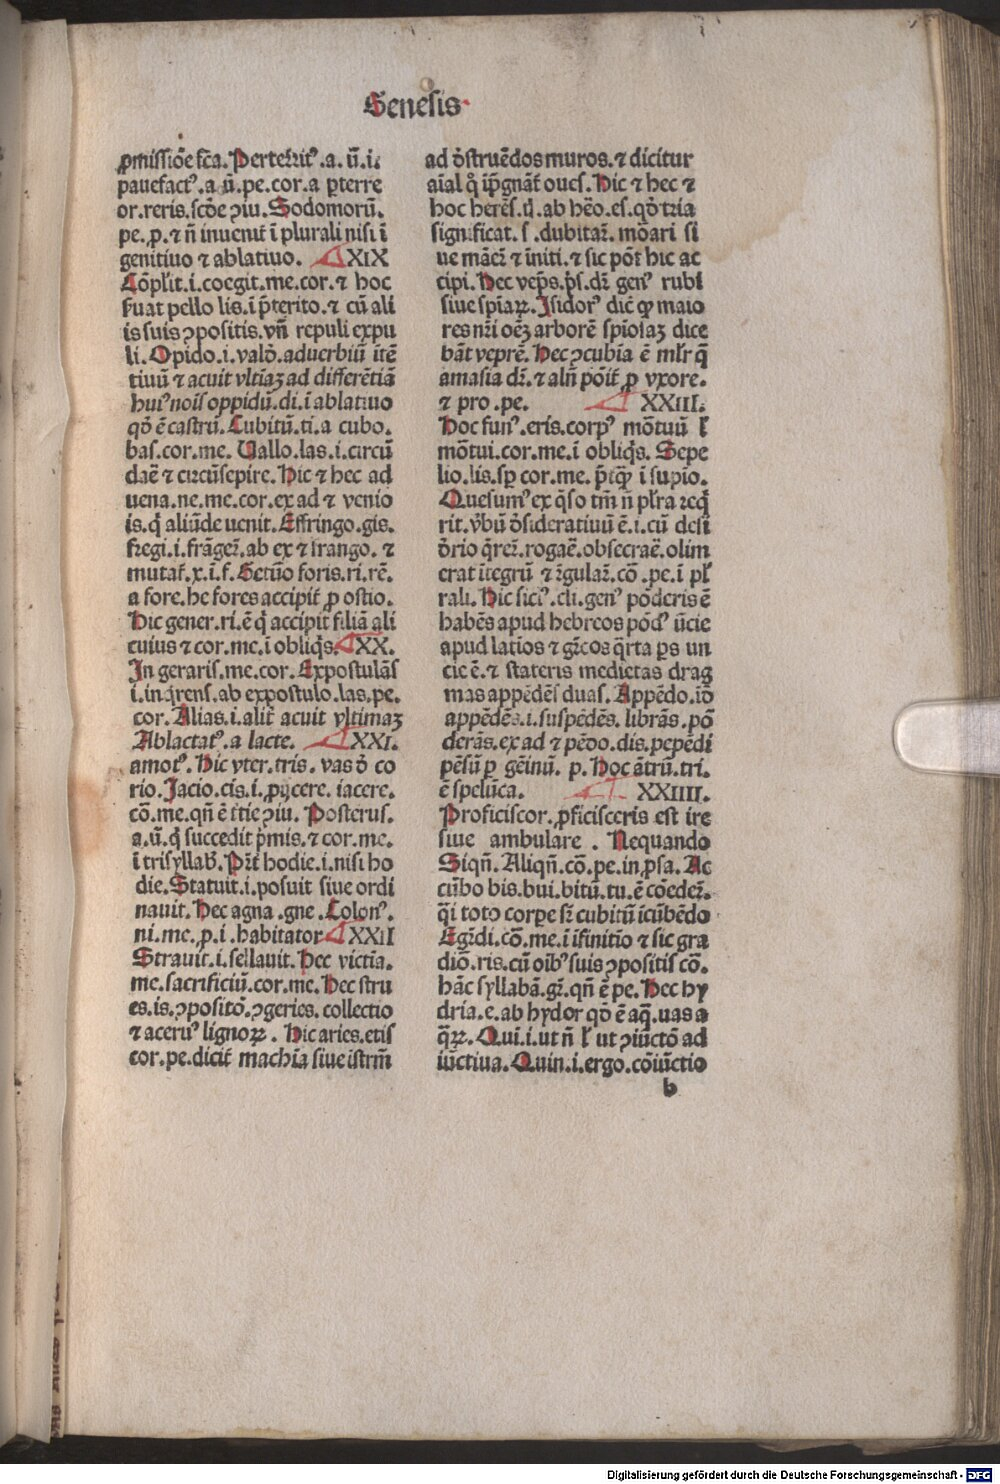 Genesis
ꝓmissiōe sc̄a. Perterrit⁹ .a. ū. i.
pauefact⁹ .a ū. pe. cor. a ꝑterre
or. reris. scd̄e ꝯiu. Sodomorū.
pe. ꝓ. ⁊ n̄ inuenit̄ ī plurali nisi ī
genitiuo ⁊ ablatiuo. XIX
Cōpl̄it .i. coegit. me. cor. ⁊ hoc
ẜuat pello lis. ī p̄terito. ⁊ cū ali
is suis ꝯpositis. vn̄ repuli expu
li. Opido .i. valō. aduerbiū ītē
tiuū ⁊ acuit vltiaꝫ ad differētiā
hui⁹ nois̄ oppidū. di. ī ablatiuo
qd̄ ē castrū. Cubitū. ti. a cubo.
bas. cor. me. Uallo. las .i. circū
daē ⁊ circūsepire. Hic ⁊ hec ad
uena. ne. me. cor. ex ad ⁊ venio
is. q̄ aliūde uenit. Effringo. gis.
fregi .i. frāger̄. ab ex ⁊ frango. ⁊
mutat̄. x. ī. f. Setūo foris. ri. rē.
a fore. he fores accipit̄ ꝓ ostio.
Hic gener. ri. ē q̄ accipit filiā ali
cuius ⁊ cor. me. ī obliq̄s. XX.
In geraris. me. cor. Expostulās
.i. inq̄rens̄. ab expostulo. las. pe.
cor. Alias .i. alit̄ acuit vltimaꝫ
Ablactat⁹. a lacte. XXI.
amot⁹. Hic vter. tris. vas d̄ co
rio. Jacio. cis .i. ꝓijcere. iacere.
cō. me. qn̄ ē t̄tie ꝯiu. Posterus.
a. ū. q̄ succedit p̄mis. ⁊ cor. me.
ī trisyllab̄. Pr̄t hodie .i. nisi ho
die. Statuit .i. posuit siue ordi
nauit. Hec agna. gne. Colon⁹.
ni. me. ꝓ. i. habitator XXII
Strauit .i. sellauit. Hec victīa.
me. sacrificiū. cor. me. Hec stru
es. is. ꝯpositō. ꝯgeries. collectio
⁊ aceru⁹ lignoꝝ. Hic aries. etis̄
cor. pe. dicit̄ machīa siue istrm̄
ad d̄struēdos muros. ⁊ dicitur
aīal qd̄ īpugnāt oues̄. Hic ⁊ hec ⁊
hoc herēs. q̄. ab hēo. es. qd̄ tria
significat. s̄. dubitar̄. mōari si
ue māer̄ ⁊ īniti. ⁊ sic pōt hic ac
cipi. Hec vep̄s. p̄s. dr̄ gen⁹ rubi
siue spīaꝝ. Isidor⁹ dic̄ ꝙ maio
res nr̄i oēꝫ arborē spīosaꝫ dice
bāt veprē. Hec ꝯcubīa ē ml̄r q̄
amasia dr̄. ⁊ aln̄ pōit̄ ꝓ vxore.
⁊ pro. pe. XXIII.
Hoc fun⁹. eris. corp⁹ mōtuū l̄
mōtui. cor. me. ī obliq̄s. Sepe
lio. lis. sp̄ cor. me. p̄tq̄ꝫ ī supio.
Quesum⁹ ex q̄so tm̄ n̄ pl̄ra req̄
rit. v̄bū d̄sideratiuū ē .i. cū desi
d̄rio q̄rer̄. rogaē. obsecraē. olim
erat ītegrū ⁊ r̄gular̄. cō. pe. ī pl̄
rali. Hic sicl⁹. cli. gen⁹ pōderis ē
habēs apud hebreos pōd⁹ ūcie
apud latīos ⁊ gr̄cos q̄rta ps un
cie ē. ⁊ stateris medietas drag
mas appēdēs̄ duas. Appēdo. iō
appēdēs .i. suspēdēs. librās. pō
derās. ex ad ⁊ pēdo. dis. pepēdi
pēsū ꝑ gēinū. p. Hoc ātrū. tri.
ē spelūca. XXIIII.
Proficiscor. ꝓficisceris est ire
siue ambulare. Nequando
Siqn̄. Aliqn̄. cō. pe. in ꝓsa. Ac
cūbo bis. bui. bitū. tu. ē cōeder̄.
q̄i toto corpe sr̄ cubitū īcūbēdo
Egr̄di. cō. me. ī īfinitīo ⁊ sic gra
diō. ris. cū oīb⁹ suis ꝯpositis cō.
hāc syllabā. gr̄. qn̄ ē pe. Hec hy
dria. e. ab hydor qd̄ ē aq̄. uas a
q̄ꝝ. Qui .i. ut n̄ l̄ ut ꝯiūctō ad
iūctiua. Quin .i. ergo. cōiūctio
b
Digitalisierung gefördert durch die Deutsche Forschungsgemeinschaft - DFG